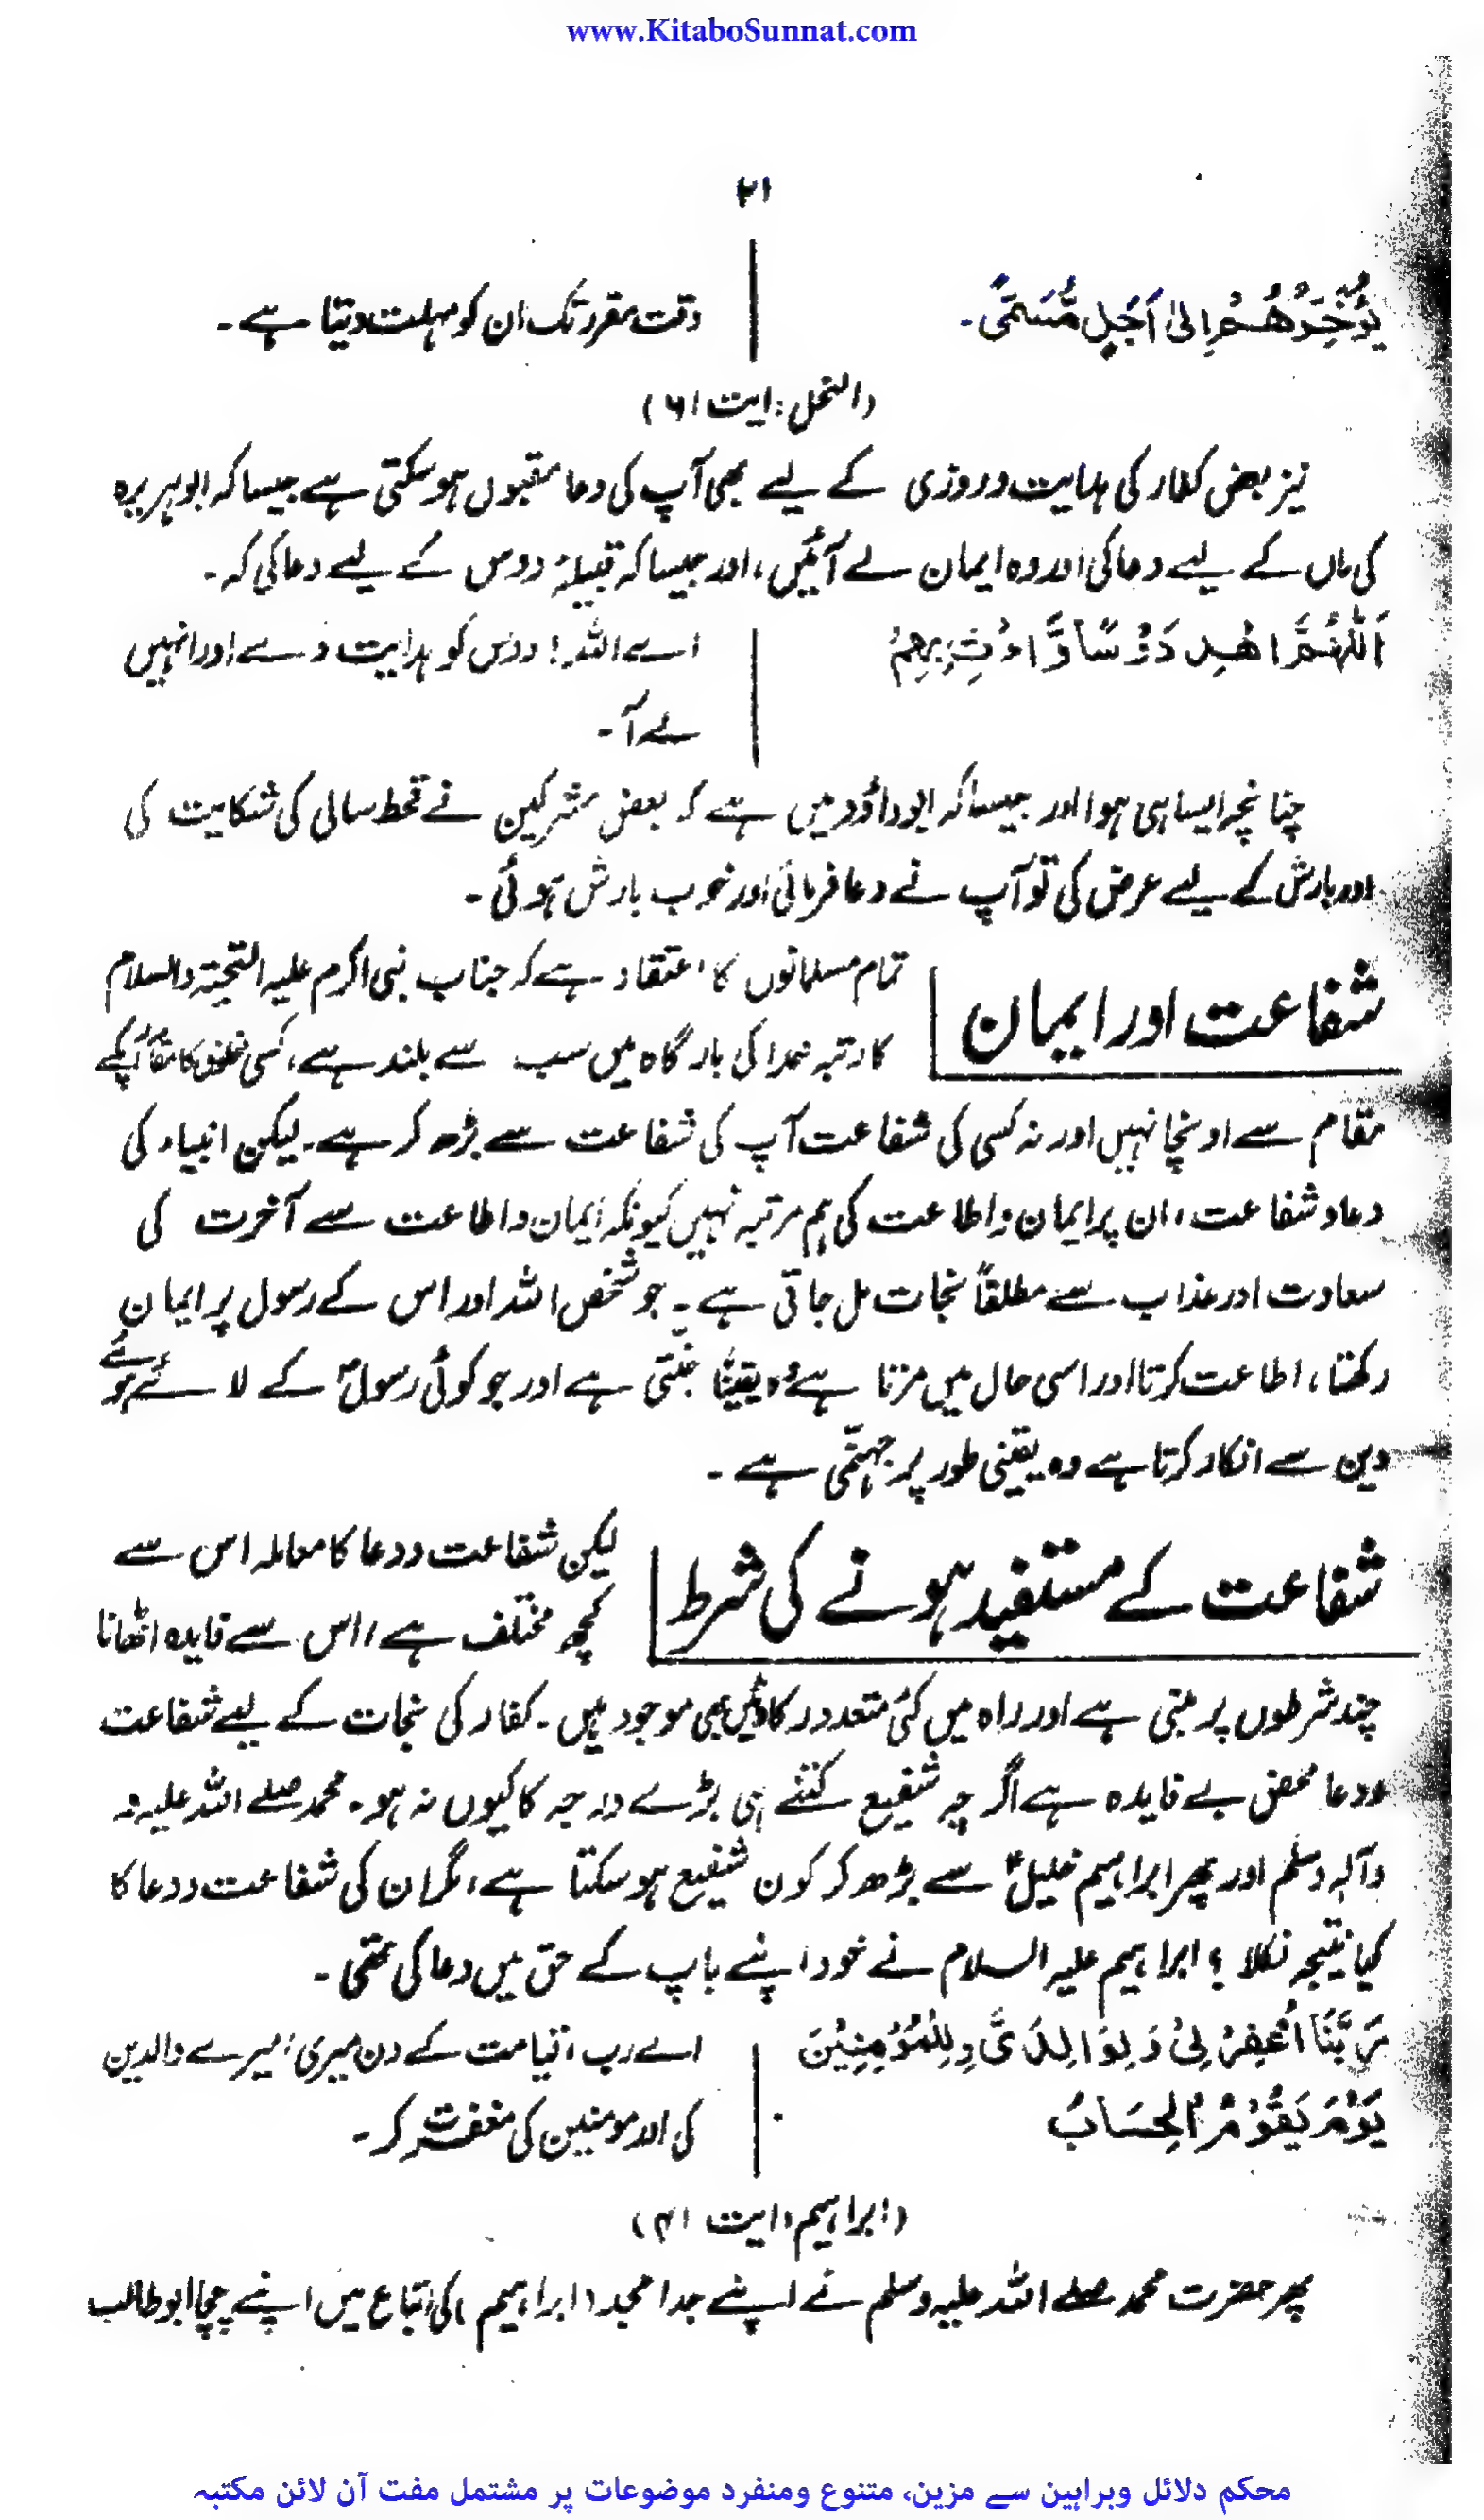 www.KitaboSunnat.com
۲۱
يُؤَخِّرُهُمْ اِلىٰ اَجَلٍ مُّسَمًّى۔
وقت مقرر تک ان کو مہلت دیتا ہے۔
(النحل: ایت ۶۱)
نیز بعض کفار کی ہدایت و روزی کے لیے بھی آپ کی دعا مقبول ہو سکتی ہے جیسا کہ ابوہریرہ
کی ماں کے لیے دعا کی اور وہ ایمان لے آئیں، اور جیسا کہ قبیلۂ دوس کے لیے دعا کی کہ۔
اَللّٰهُمَّ اهْدِ دَوْسًا وَّاءْتِ بِهِمْ
اے اللہ! دوس کو ہدایت دے اور انہیں
لے آ۔
چنانچہ ایسا ہی ہوا اور جیسا کہ ابوداؤد میں ہے کہ بعض مشرکین نے قحط سالی کی شکایت کی
اور بارش کے لیے عرض کی تو آپ نے دعا فرمائی اور خوب بارش ہوئی۔
شفاعت اور ایمان
تمام مسلمانوں کا اعتقاد ہے کہ جناب نبی اکرم علیہ التحیۃ والسلام
کا رتبہ خدا کی بارگاہ میں سب سے بلند ہے، کسی مخلوق کا مقام آپ کے
مقام سے اونچا نہیں اور نہ کسی کی شفاعت آپ کی شفاعت سے بڑھ کر ہے۔ لیکن انبیاء کی
دعا و شفاعت، ان پر ایمان و اطاعت کی ہم مرتبہ نہیں کیونکہ ایمان و اطاعت سے آخرت کی
سعادت اور عذاب سے مطلقاً نجات مل جاتی ہے۔ جو شخص اللہ اور اس کے رسول پر ایمان
رکھتا، اطاعت کرتا اور اسی حال میں مرتا ہے وہ یقیناً جنّتی ہے اور جو کوئی رسولؐ کے لائے ہوئے
دین سے انکار کرتا ہے وہ یقینی طور پر جہنّمی ہے۔
شفاعت کے مستفید ہونے کی شرط
لیکن شفاعت و دعا کا معاملہ اس سے
کچھ مختلف ہے، اس سے فایدہ اٹھانا
چند شرطوں پر مبنی ہے اور راہ میں کئی متعدد رکاوٹیں بھی موجود ہیں۔ کفار کی نجات کے لیے شفاعت
و دعا محض بے فایدہ ہے اگر چہ شفیع کتنے ہی بڑے درجہ کا کیوں نہ ہو۔ محمد صلے اللہ علیہ و
وآلہٖ وسلم اور پھر ابراہیم خلیلؑ سے بڑھ کر کون شفیع ہو سکتا ہے، مگر ان کی شفاعت و دعا کا
کیا نتیجہ نکلا؟ ابراہیم علیہ السلام نے خود اپنے باپ کے حق میں دعا کی تھی۔
رَبَّنَا اغْفِرْ لِيْ وَلِوَالِدَيَّ وَلِلْمُؤْمِنِيْنَ
يَوْمَ يَقُوْمُ الْحِسَابُ
اے رب، قیامت کے دن میری، میرے والدین
کی اور مومنین کی مغفرت کر۔
(ابراہیم، ایت ۴۱)
پھر حضرت محمد صلے اللہ علیہ وسلم نے اپنے جد امجد (ابراہیم) کی اتباع میں اپنے چچا ابوطالب
محکم دلائل وبراہین سے مزین، متنوع ومنفرد موضوعات پر مشتمل مفت آن لائن مکتبہ